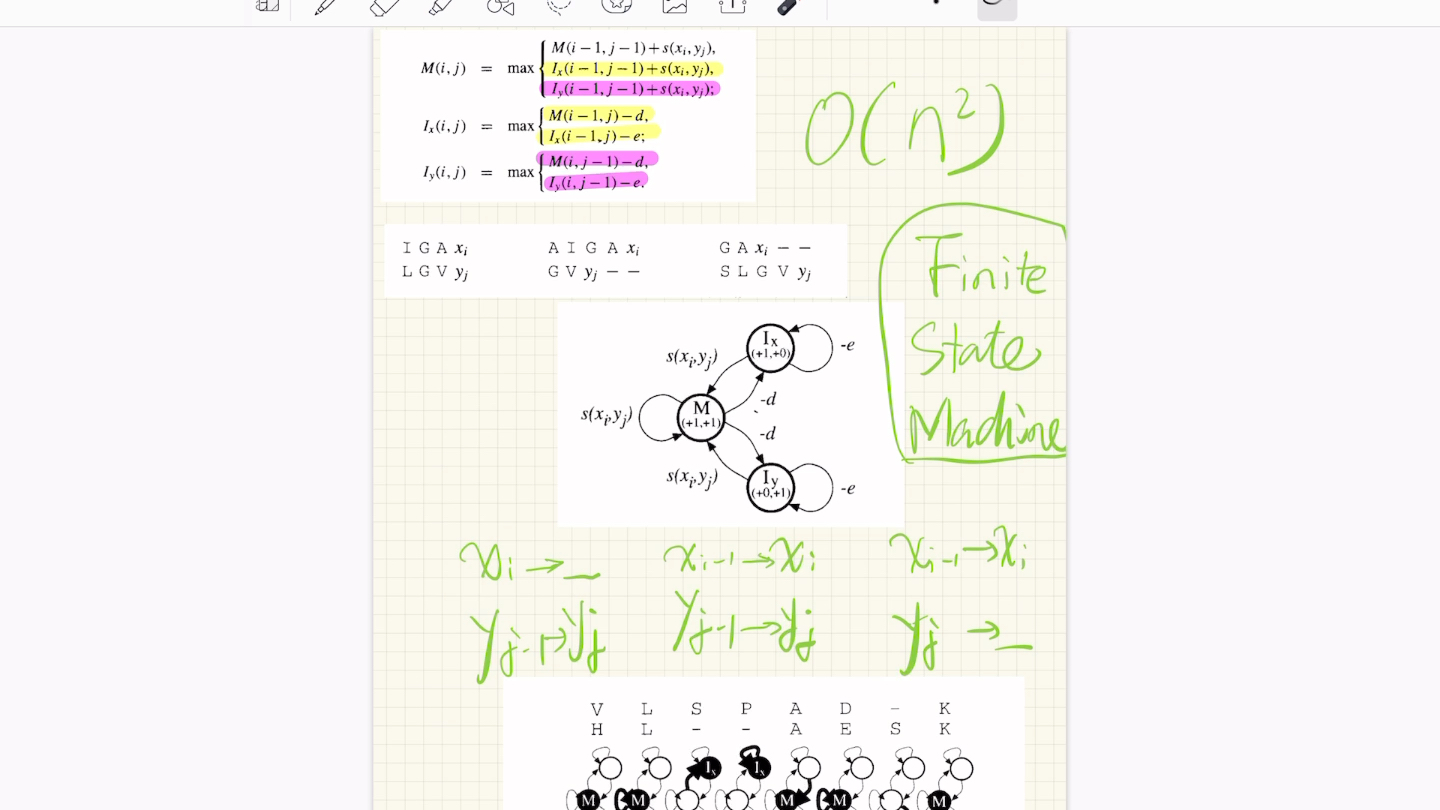 M(i, j) = max { M(i − 1, j − 1) + s(xᵢ, yⱼ),
Iₓ(i − 1, j − 1) + s(xᵢ, yⱼ),
I_y(i − 1, j − 1) + s(xᵢ, yⱼ);
Iₓ(i, j) = max { M(i − 1, j) − d,
Iₓ(i − 1, j) − e;
I_y(i, j) = max { M(i, j − 1) − d,
I_y(i, j − 1) − e.
O(n²)
I G A xᵢ
L G V yⱼ
A I G A xᵢ
G V yⱼ − −
G A xᵢ − −
S L G V yⱼ
Finite
State
Machine
Iₓ
(+1,+0)
-e
s(xᵢ,yⱼ)
-d
M
(+1,+1)
s(xᵢ,yⱼ)
-d
s(xᵢ,yⱼ)
I_y
(+0,+1)
-e
xᵢ → _
yⱼ₋₁ → yⱼ
xᵢ₋₁ → xᵢ
yⱼ₋₁ → yⱼ
xᵢ₋₁ → xᵢ
yⱼ → _
V L S P A D - K
H L - - A E S K
Iₓ Iₓ
M M M M M